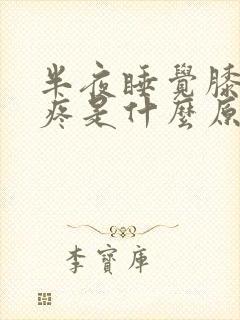 半夜睡覺膝
疼是什麼原
李寶庫